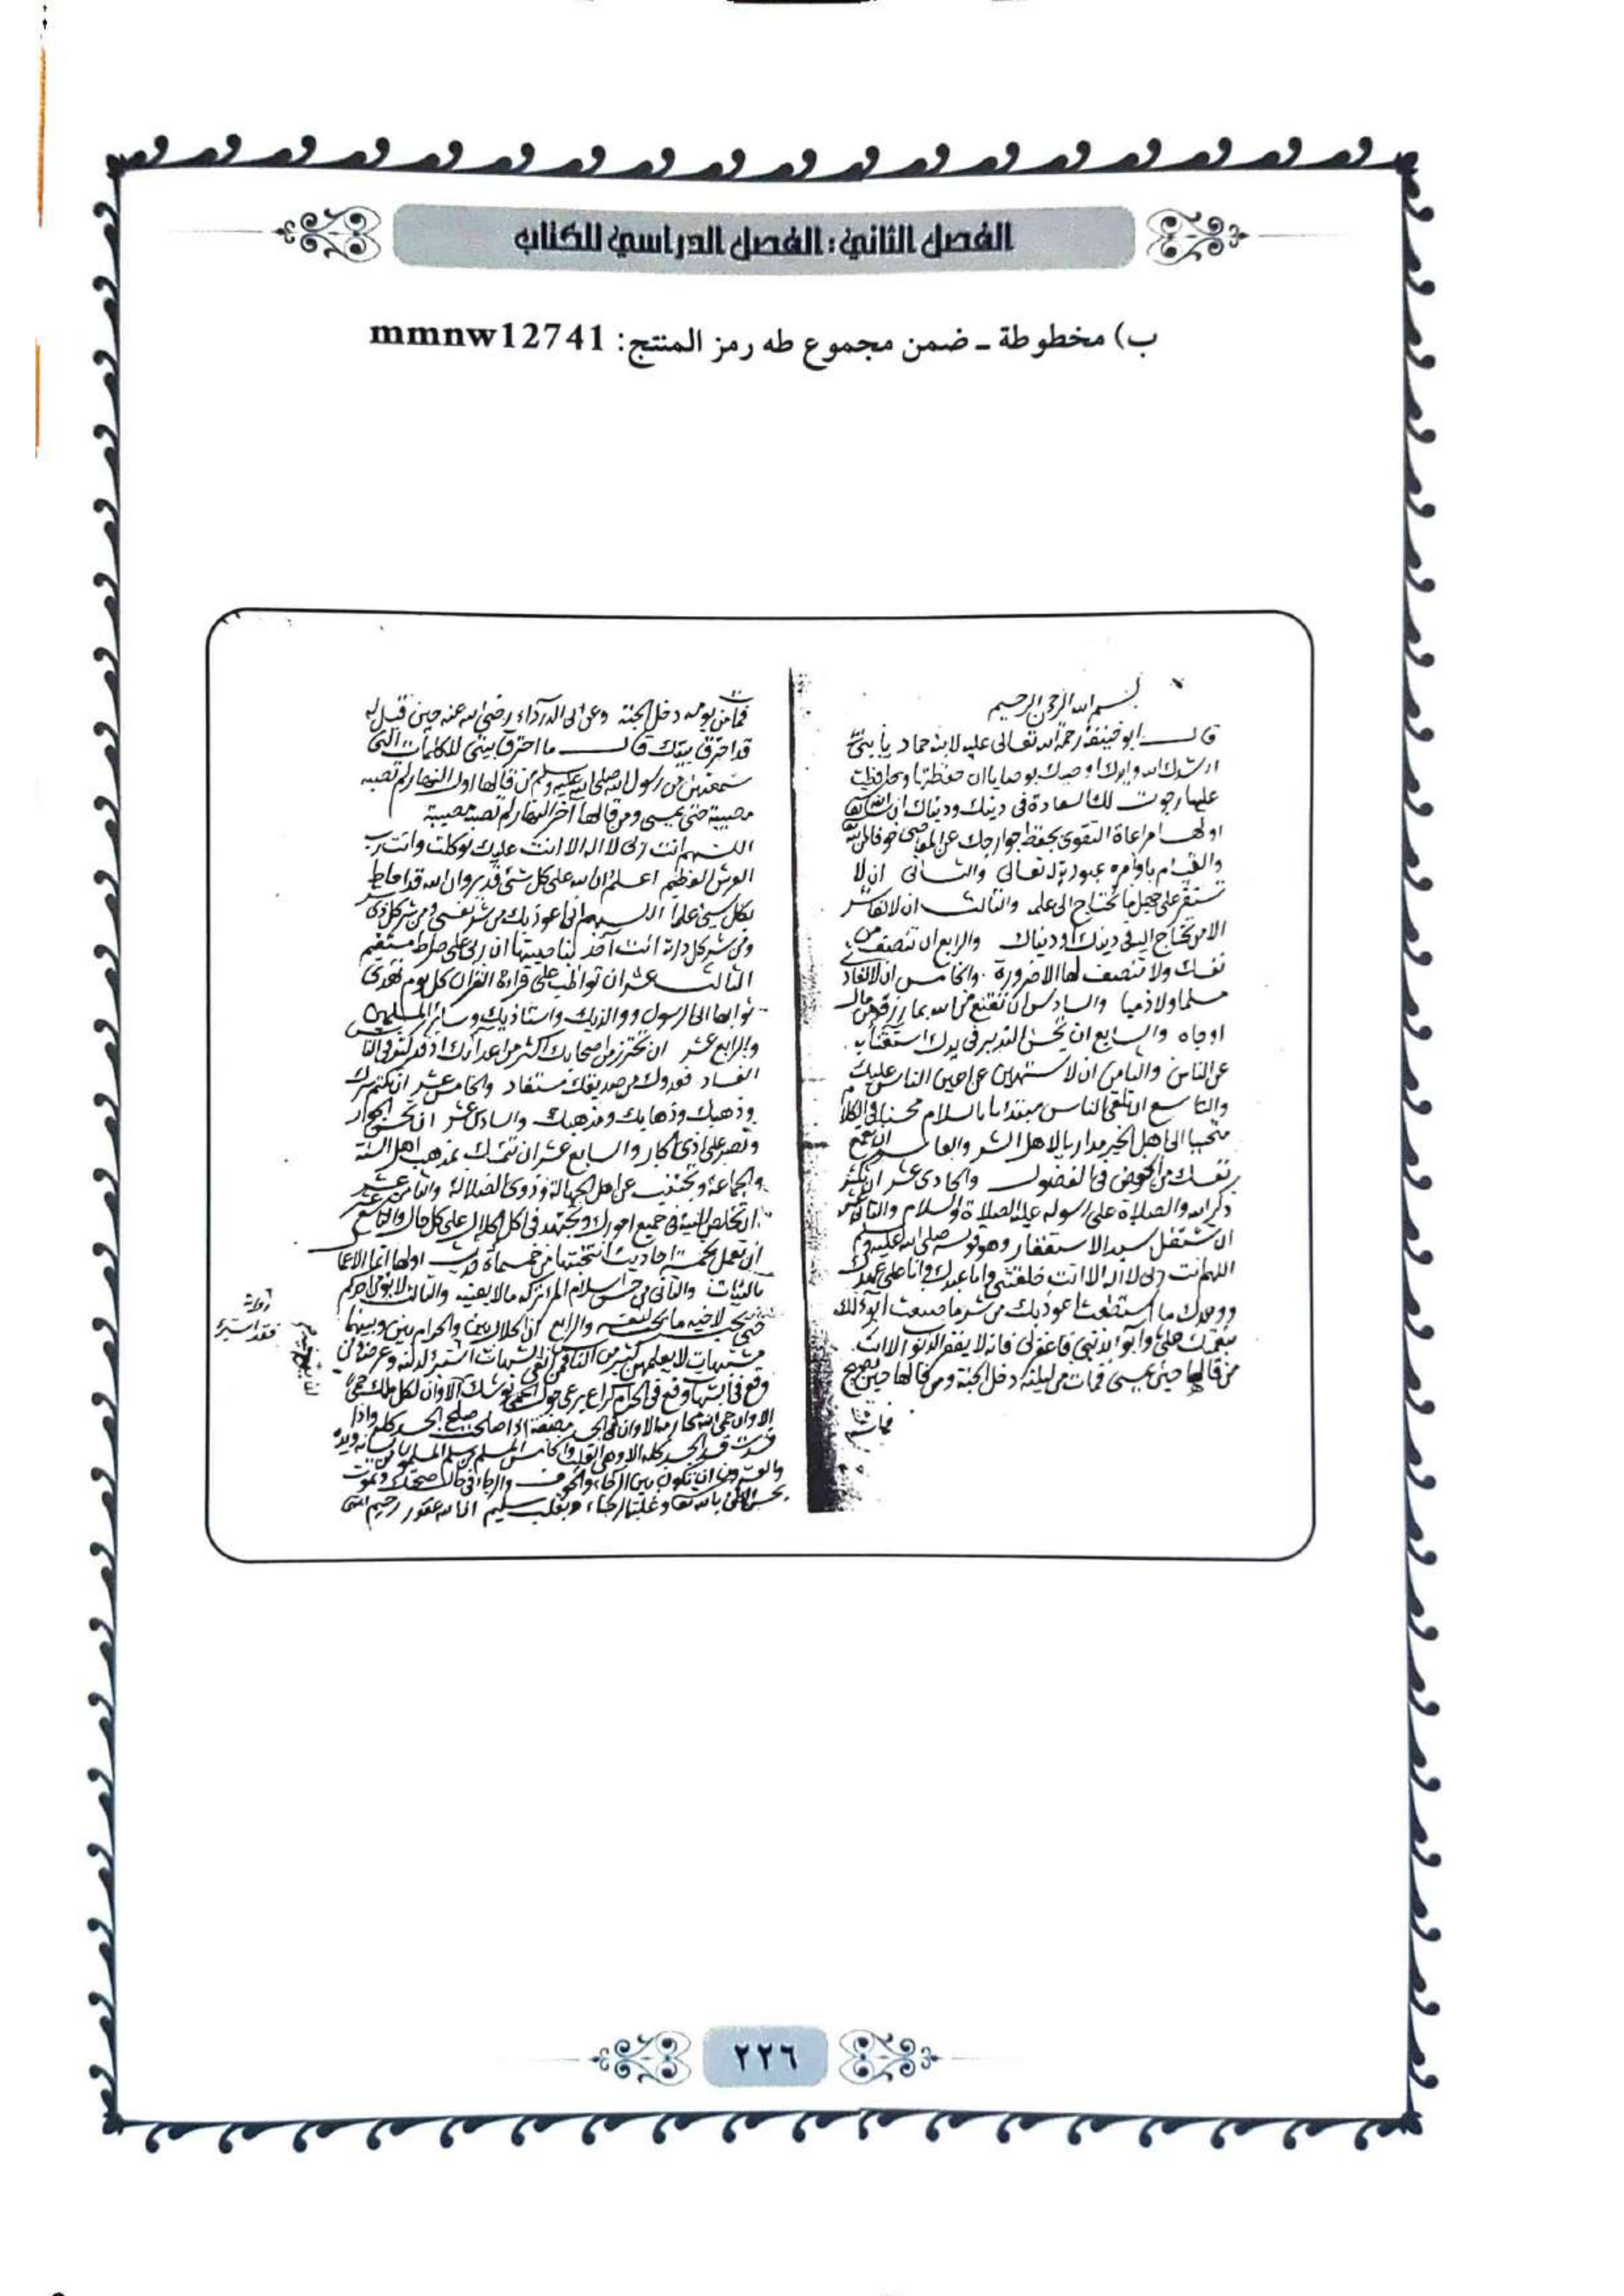 الفصل الثاني: الفصل الدراسي للكتاب
ب) مخطوطة - ضمن مجموع طه رمز المنتج: mmnw12741
بسم الله الرحمن الرحيم
قال ابو حنيفة رحمة الله تعالى عليه لابنه حماد يا بني
ارشدك الله وايدك اوصيك بوصايا ان حفظتها وحافظت
عليها رجوت لك السعادة في دينك ودنياك ان شاء الله تعالى
اولها مراعاة التقوى بحفظ جوارحك عن المعاصي خوفا من الله
والقيام باوامره عبودية له تعالى والثاني ان لا
تستقر على جهل ما تحتاج الى علمه والثالث ان لا تعاشر
الا من تحتاج اليه في دينك او دنياك والرابع ان تنصف من
نفسك ولا تنتصف لها الا ضرورة والخامس ان لا تعادي
مسلما ولا ذميا والسادس ان تقنع من الله بما رزقك من مال
او جاه والسابع ان تحسن التدبير في يدك استغناء به
عن الناس والثامن ان لا تستهين عن اعين الناس عليك
والتاسع ان تلقى الناس مبتدا بالسلام محسنا في الكلام
متحببا الى اهل الخير مداريا لاهل الشر والعاشر ان تقمع
نفسك من الخوض في الفضول والحادي عشر ان تكثر
ذكر الله والصلاة على رسوله عليه الصلاة والسلام والثاني عشر
ان تشتغل بسيد الاستغفار وهو قوله صلى الله عليه وسلم
اللهم انت ربي لا اله الا انت خلقتني وانا عبدك وانا على عهدك
ووعدك ما استطعت اعوذ بك من شر ما صنعت ابوء لك
بنعمتك علي وابوء بذنبي فاغفر لي فانه لا يغفر الذنوب الا انت
من قالها حين يمسي فمات من ليلته دخل الجنة ومن قالها حين يصبح
فمات
فمات من يومه دخل الجنة وعن ابي الدرداء رضي الله عنه حين قيل له
قد احترق بيتك قال ما احترق بيتي للكلمات التي
سمعتهن من رسول الله صلى الله عليه وسلم من قالها اول النهار لم تصبه
مصيبة حتى يمسي ومن قالها اخر النهار لم تصبه مصيبة
اللهم انت ربي لا اله الا انت عليك توكلت وانت رب
العرش العظيم اعلم ان الله على كل شئ قدير وان الله قد احاط
بكل شئ علما اللهم اني اعوذ بك من شر نفسي ومن شر كل ذي شر
ومن شر كل دابة انت آخذ بناصيتها ان ربي على صراط مستقيم
الثالث عشر ان تواظب على قراءة القران كل يوم تهدي
ثوابها الى الرسول ووالديك واستاذيك وسائر المسلمين
والرابع عشر ان تحترز من اصحابك اكثر من اعدائك اذ قد كثر في الناس
الفساد فعدوك من صديقك مستفاد والخامس عشر ان تكتم سرك
وذهبك وذهابك ومذهبك والسادس عشر ان تحسن الجوار
وتصبر على اذى الجار والسابع عشر ان تتمسك بمذهب اهل السنة
والجماعة وتجتنب عن اهل الجهالة وذوي الضلالة والثامن عشر
ان تخلص النية في جميع امورك وتجتهد في اكل الحلال على كل حال والتاسع عشر
ان تعمل بخمسة احاديث انتخبتها من خمسمائة اولها انما الاعمال
بالنيات والثاني من حسن اسلام المرء تركه مالا يعنيه والثالث لا يؤمن احدكم
حتى يحب لاخيه ما يحب لنفسه والرابع ان الحلال بين والحرام بين وبينهما
مشتبهات لا يعلمهن كثير من الناس فمن اتقى الشبهات استبرأ لدينه وعرضه ومن
وقع في الشبهات وقع في الحرام كراع يرعى حول الحمى يوشك الا وان لكل ملك حمى
الا وان حمى الله محارمه الا وان في الجسد مضغة اذا صلحت صلح الجسد كله واذا
فسدت فسد الجسد كله الا وهي القلب والخامس المسلم من سلم المسلمون من لسانه ويده
والعشرون ان تكون بين الرجاء والخوف في حال صحتك وتموت
بحسن الظن بالله تعالى وغلبة الرجاء وبقلب سليم ان الله غفور رحيم
٢٢٦